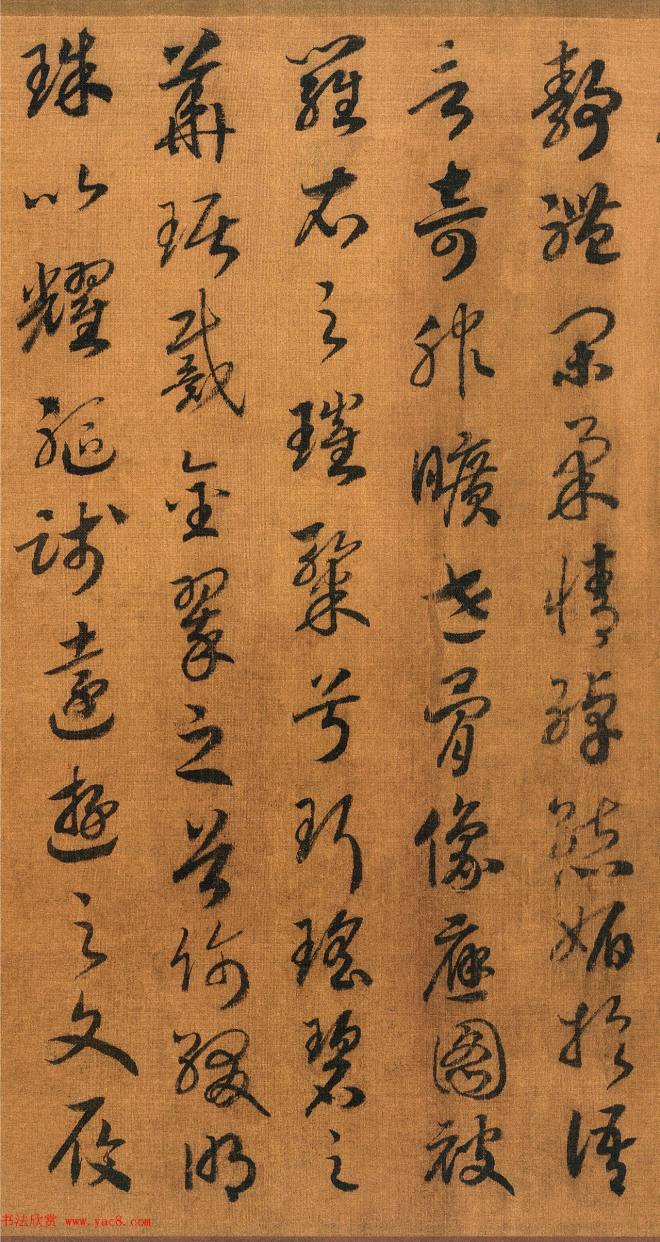 靜體閑柔情綽態媚於語
言奇服曠世骨像應圖被
羅衣之璀粲兮珥瑤碧之
華琚戴金翠之首飾綴明
珠以耀軀踐遠遊之文履
书法欣赏 www.yac8.com